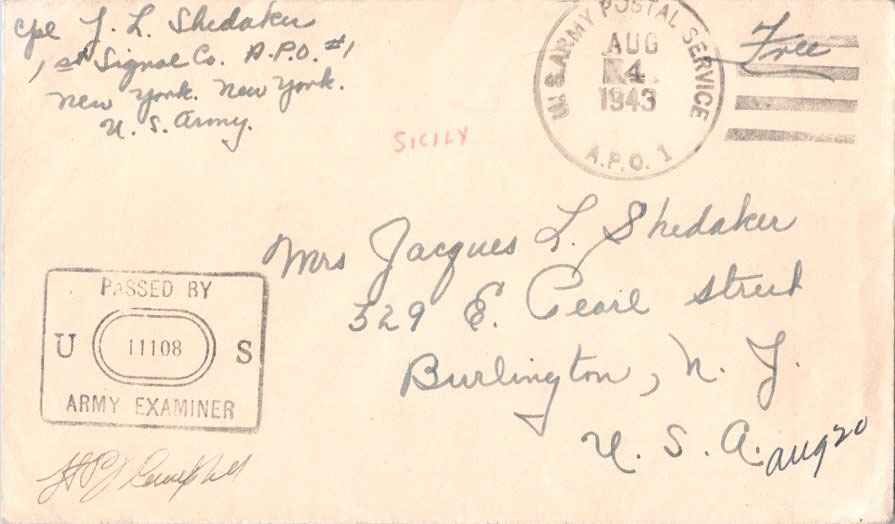 Cpl J. L. Shedaker
1st Signal Co. A.P.O. #1
New York. New York.
U. S. Army.
U.S. ARMY POSTAL SERVICE
AUG
4
1943
A.P.O. 1
Free
SICILY
Mrs Jacques L. Shedaker
329 E. Pearl Street
Burlington, N. J.
U. S. A.
Aug 20
PASSED BY
U 11108 S
ARMY EXAMINER